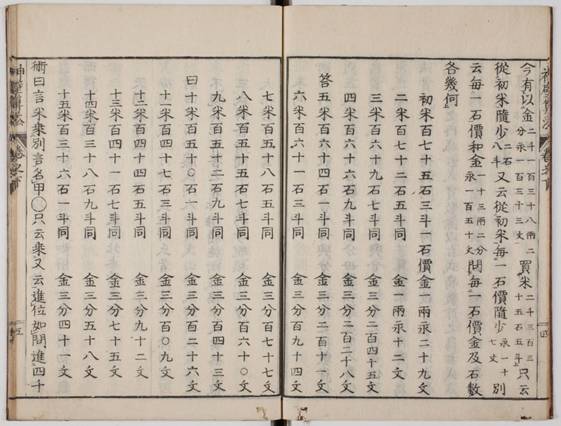 今有以金二千一百三十八兩二分永一百三十三文買米二千三百三十五石五斗只云
從初米隨少二石八斗又云從初米每一石價隨少永一十七文別
云每一石價和金一十三兩二分永一百五十文問每一石價金及石數
各幾何
初米百七十五石三斗一石價金一兩永二十九文
二米百七十二石五斗同 金一兩永十二文
三米百六十九石七斗同 金三分二百四十五文
四米百六十六石九斗同 金三分二百二十八文
答五米百六十四石一斗同 金三分二百十一文
六米百六十一石三斗同 金三分百九十四文
七米百五十八石五斗同 金三分百七十七文
八米百五十五石七斗同 金三分百六十〇文
九米百五十二石九斗同 金三分百四十三文
曰十米百五十〇石一斗同 金三分百二十六文
十一米百四十七石三斗同 金三分百〇九文
十二米百四十四石五斗同 金三分九十二文
十三米百四十一石七斗同 金三分七十五文
十四米百三十八石九斗同 金三分五十八文
十五米百三十六石一斗同 金三分四十一文
術曰言米乘別言名甲〇只云乘又云進位如開進四十